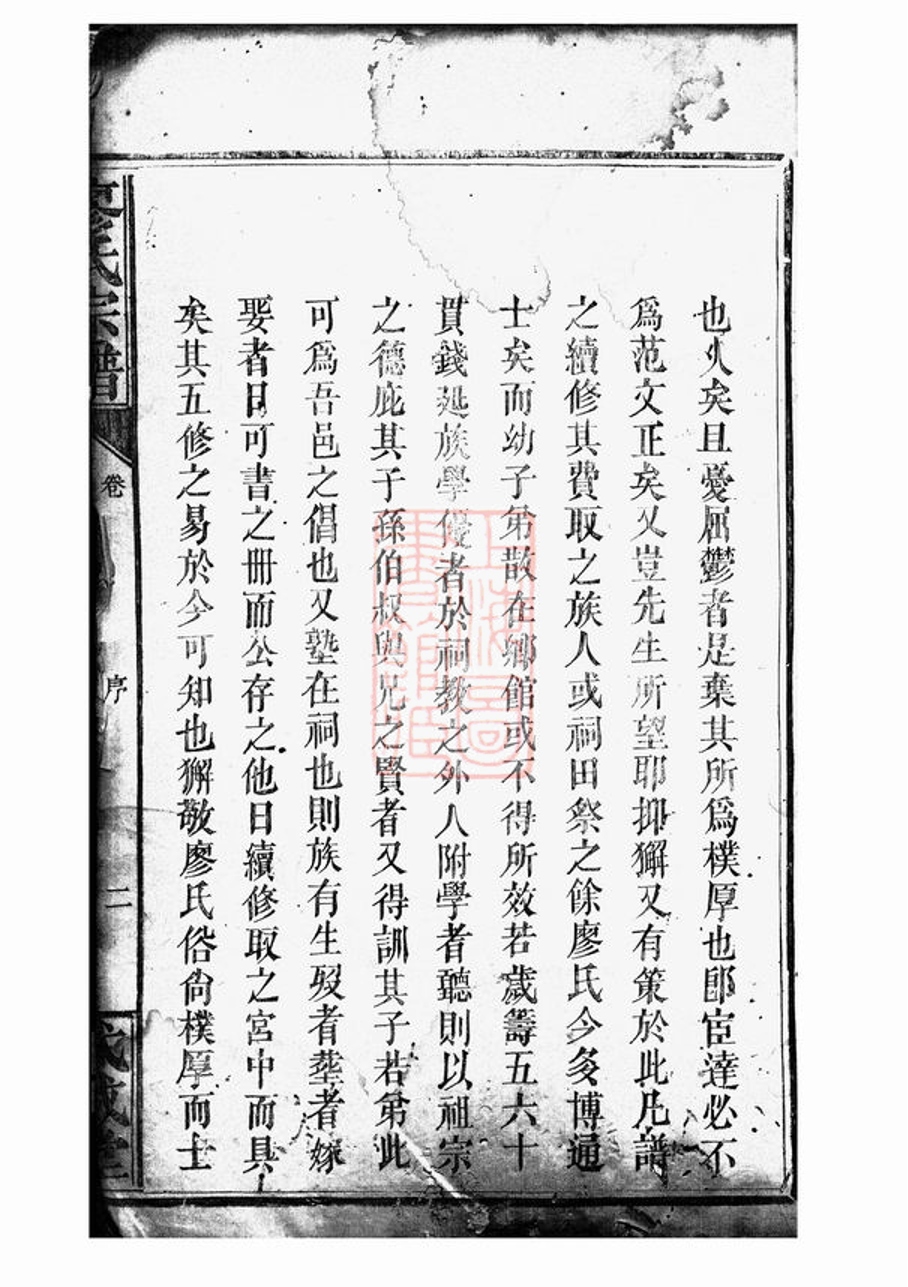 也久矣且憂屈鬱者是棄其所爲樸厚也卽宦達必不
爲范文正矣又豈先生所望耶抑獬又有策於此凡譜
之續修其費取之族人或祠田祭之餘廖氏今多博通
士矣而幼子弟散在鄉館或不得所效若歲籌五六十
貫錢延族學優者於祠教之外人附學者聽則以祖宗
之德庇其子孫伯叔與兄之賢者又得訓其子若弟此
可爲吾邑之倡也又塾在祠也則族有生歿者塟者嫁
娶者日可書之冊而公存之他日續修取之宮中而具
矣其五修之易於今可知也獬敬廖氏俗尙樸厚而士
廖氏宗譜
卷
序
二
上海圖書館藏